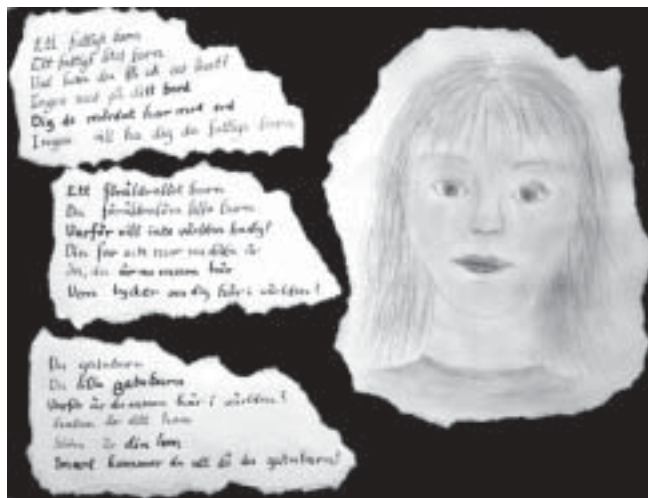 Ett fattigt barn
Ett fattigt litet barn
Vad kan du få
Ingen mat på ditt bord
Dig de mördat har med ord
Ingen vill ha dig du fattiga barn
Ett föräldralöst barn
Du föräldralösa lilla barn
Varför vill inte världen ha dig?
Din far och mor är
du är nu ensam här
Vem tycker om dig här i världen!
Du gatubarn
Du lilla gatubarn
Varför är du ensam här i världen?
Gatan är ditt hem
är din
Snart kommer du att dö du gatubarn!